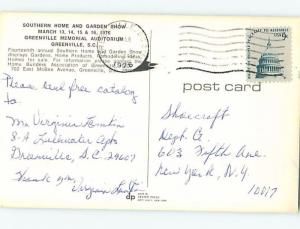 SOUTHERN HOME AND GARDEN SHOW
MARCH 13, 14, 15 & 16, 1976
GREENVILLE MEMORIAL AUDITORIUM
GREENVILLE, S.C.
Fourteenth annual Southern Home and Garden Show
displays Gardens, Home Products,
Homes for sale. For information
Home Builders Association of Greenville
702 East McBee Avenue, Greenville,
1976
post card
Please send free catalog
to.
Ms Virginia
8-A Apts
Greenville, S.C. 29607
Thank you,
Virginia
Shoecraft
Dept. C
603 Fifth Ave
New York, N.Y.
10017
dp
DEXTER PRESS